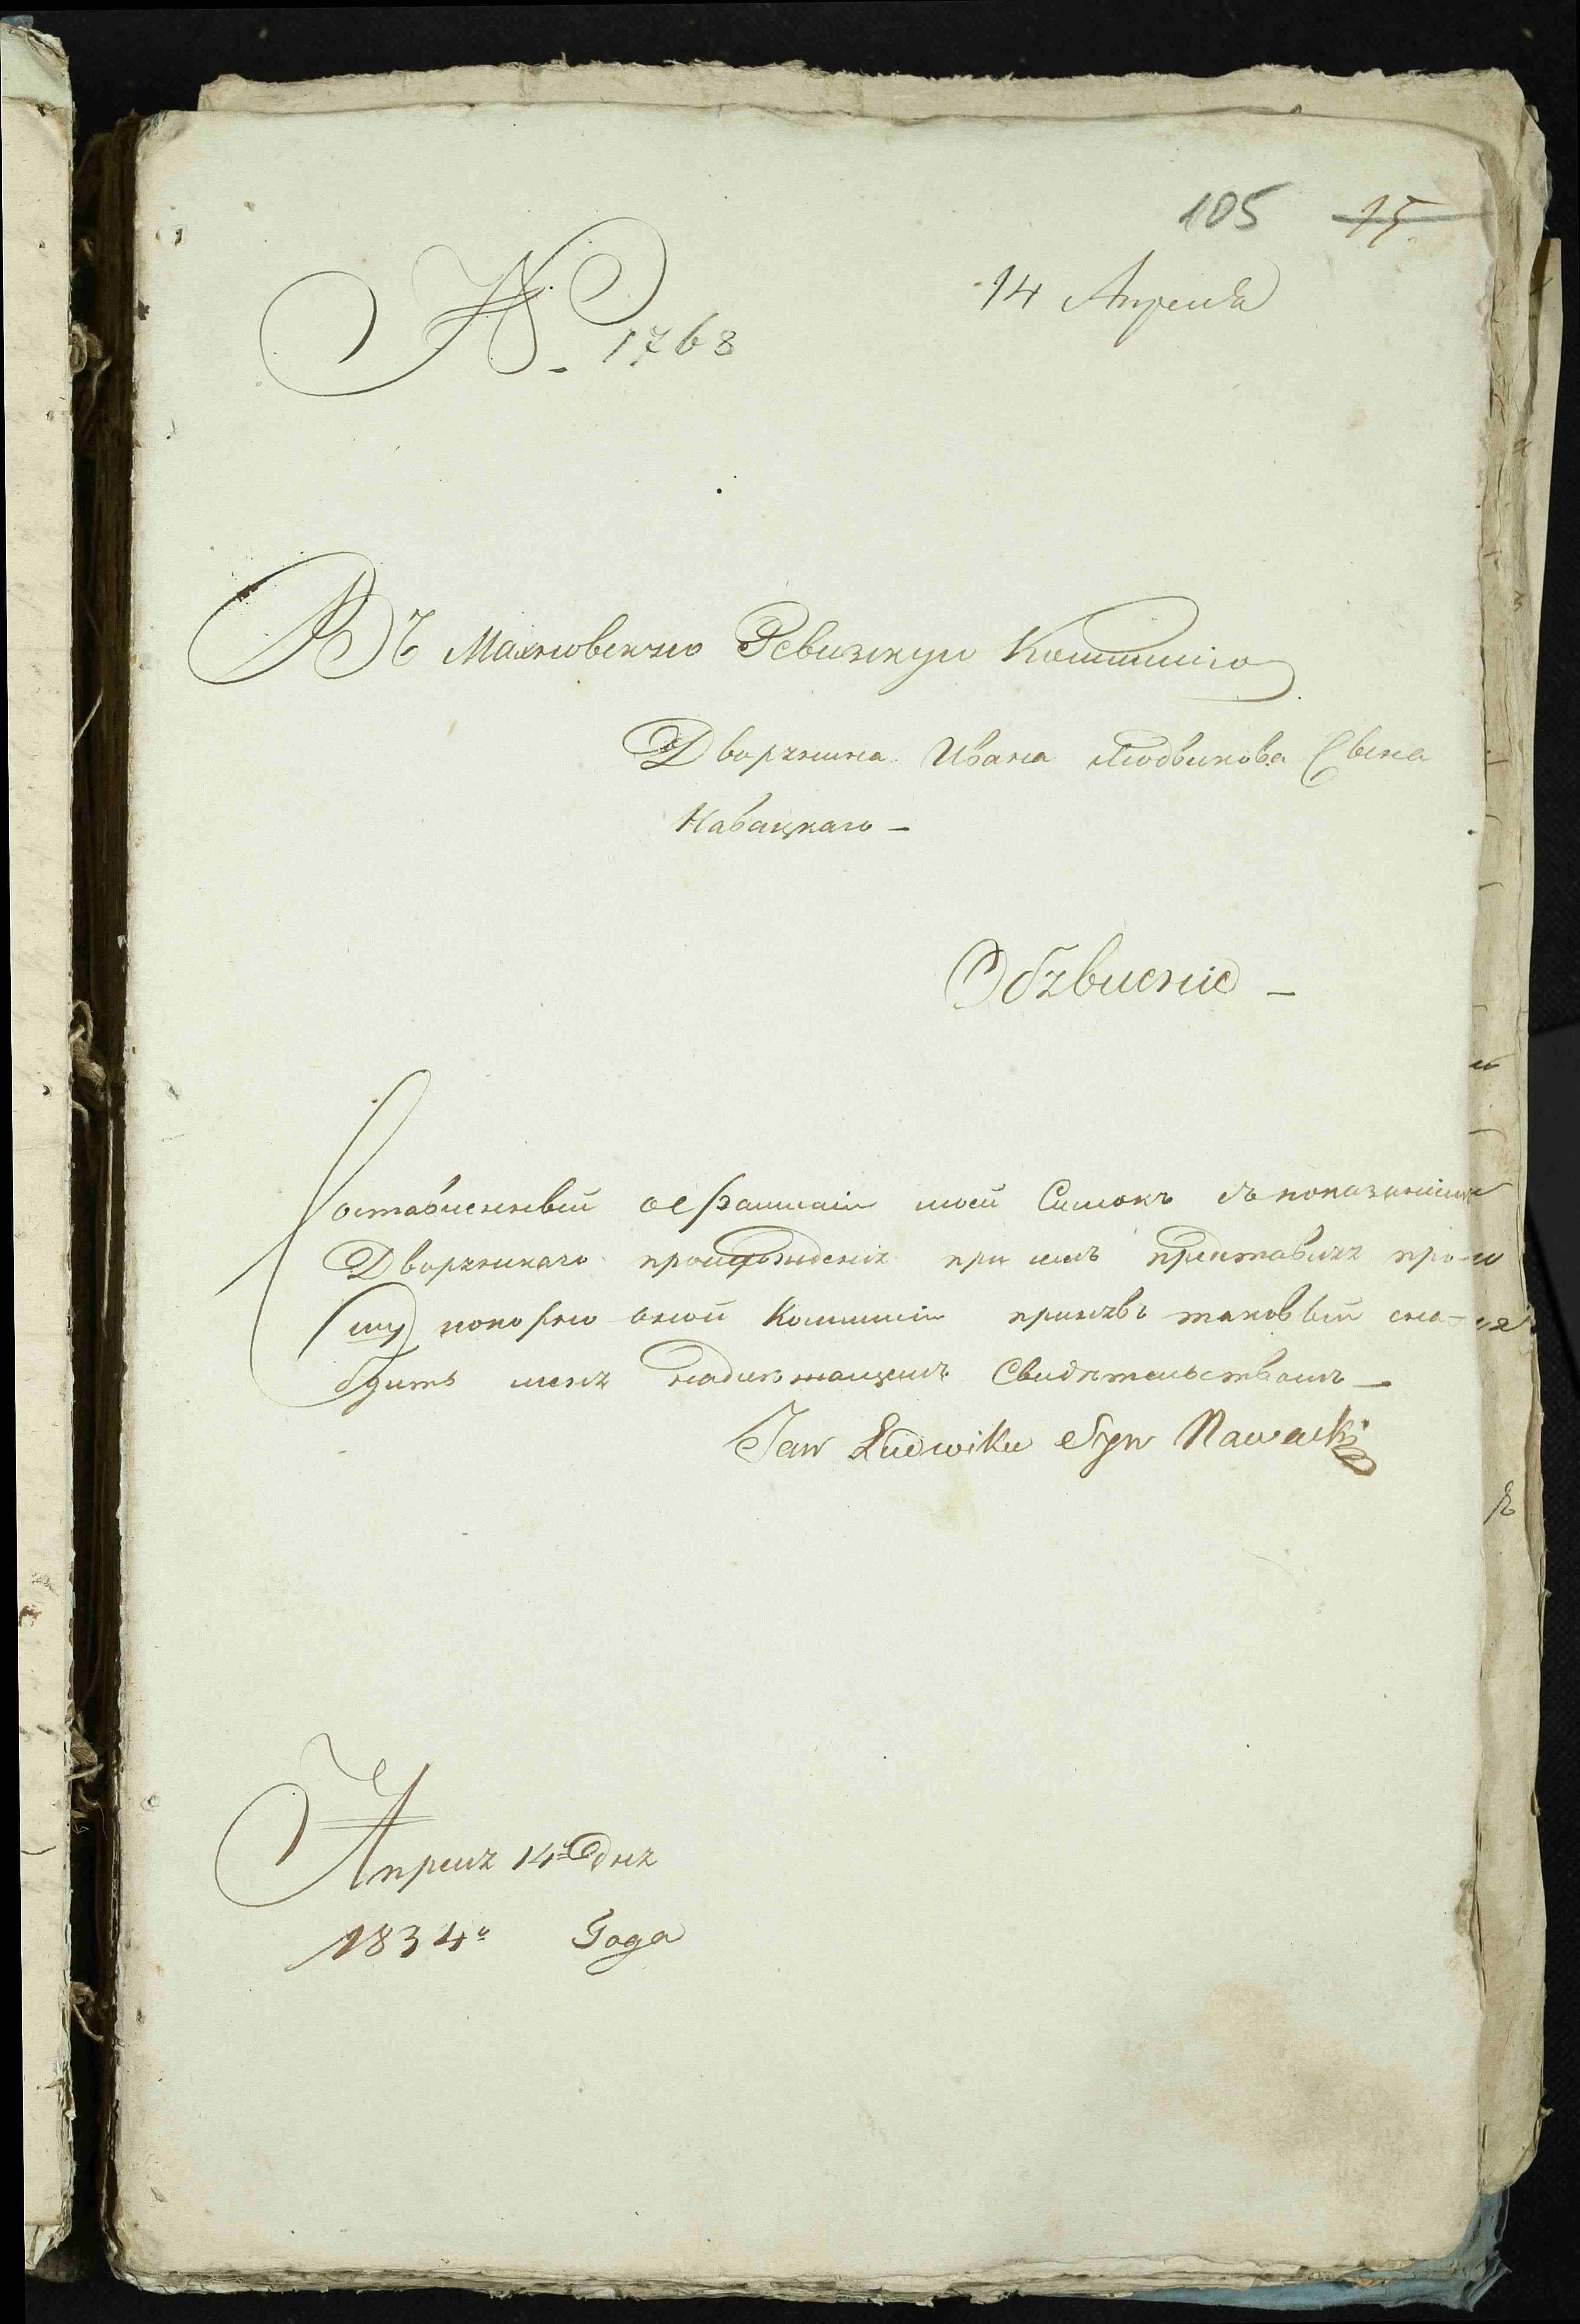 105 15
14 Апреля
№ 1768
Въ Махновскую Ревизкую Коммисію
Дворянина Ивана Людвикова Сына
Навацкаго —
Объявленіе —
Составленный о Фамиліи моей Списокъ съ показаніемъ
Дворянскаго происхожденія при семъ представляя про-
шу покорно оной Коммисіи принявъ таковый сна-
бдить меня надлежащемъ Свидѣтельствомъ —
Jan Ludwika Syn Nawacki
Апреля 14го дня
1834го Года